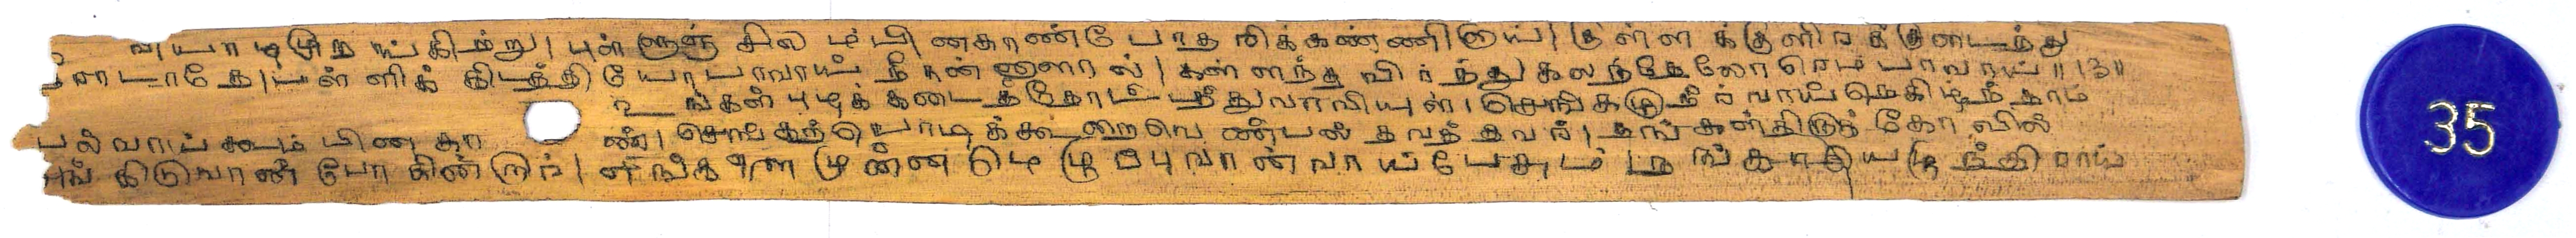 வியாழமுறங்கிற்று। புள்ளுஞ் சிலம்பினகாண் போதரிக்கண்ணினாய்। குள்ளக்குளிரக் குடைந்து
ராடாதே। பள்ளிக் கிடத்தியோ பாவாய் நீ நன்னாளால்। கள்ளந்தவிர்ந்து கலந்தேலோ ரெம்பாவாய்॥ ௰௩॥
உங்கள் புழக்கடைத் தோட்டத்துவாவியுள்। செங்கழுநீர் வாய்நெகிழ்ந்தாம்
பல்வாய் கூம்பினகாண்। செங்கற்பொடிக்கூறை வெண்பல் தவத்தவர்। தங்கள் திருக்கோவில்
சங்கிடுவான் போகின்றார்। எங்களை முன்னமெழுப்புவான் வாய்பேசும் நங்காயெழுந்திராய்
35